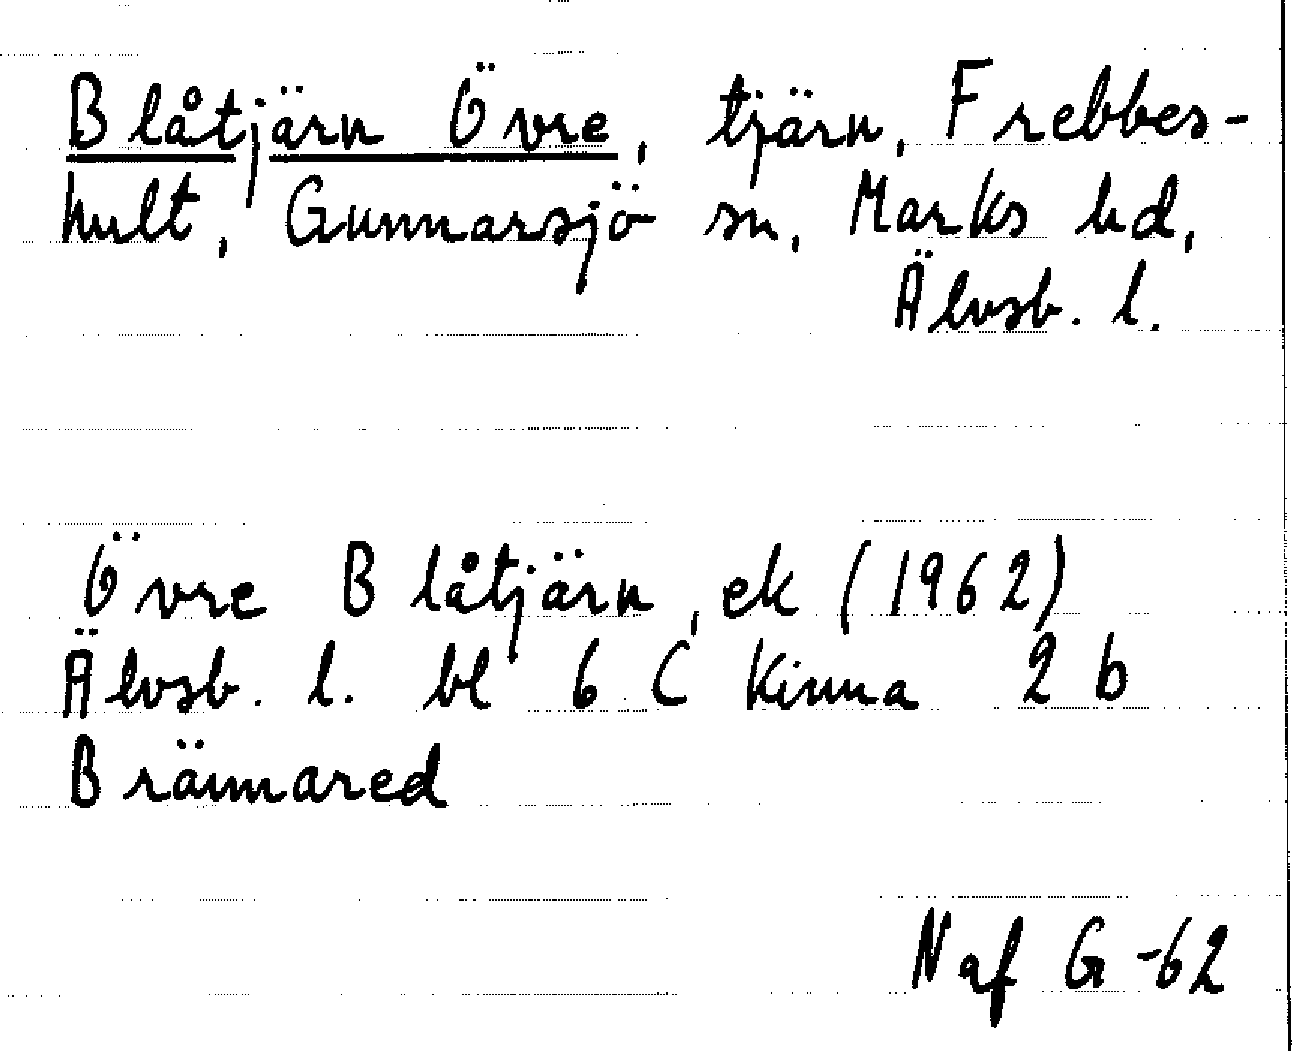 Blåtjärn Övre, tjärn, Frebbes-
hult, Gunnarsjö sn, Marks hd,
Älvsb. l.
Övre Blåtjärn, ek (1962)
Älvsb. l. bl 6 C Kinna 2 b
Brämared
Naf G-62